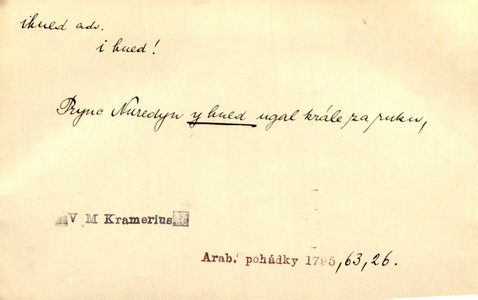 ihned adv.
i hned!
Prync Nuredyn y hned ugal krále za ruku,
V M Kramerius
Arab. pohádky 1795, 63, 26.